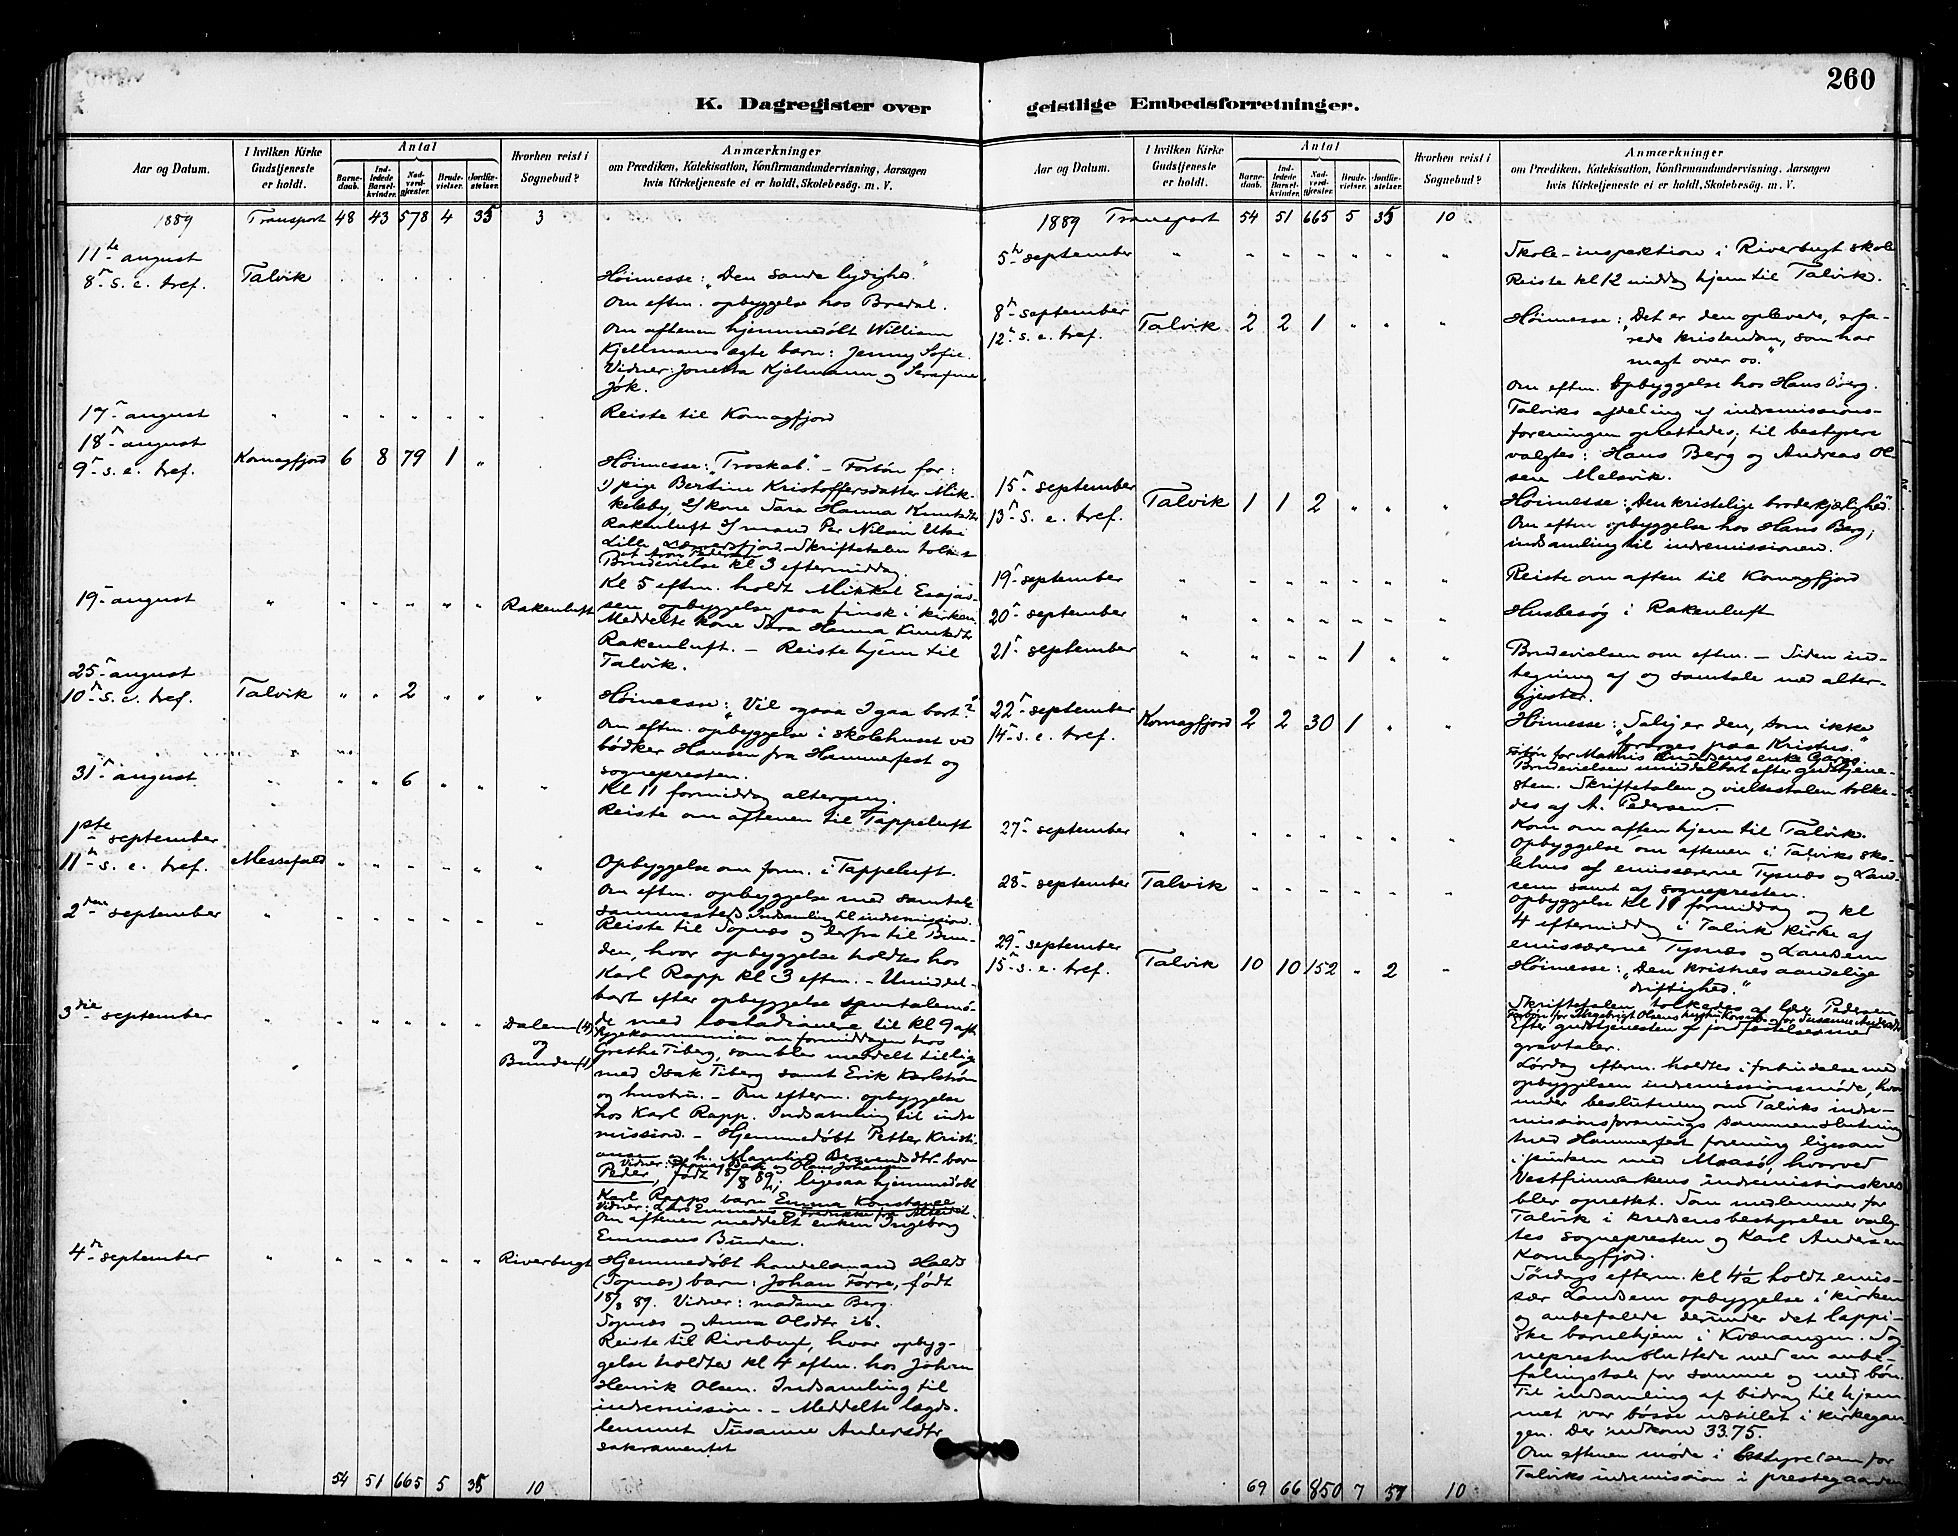 260
K. Dagregister over geistlige Embedsforretninger.
Aar og Datum.
I hvilken Kirke Gudstjeneste er holdt.
Antal
Barnedaab.
Indledede Barselkvinder.
Nadverdgjester.
Brudevielser.
Jordfæstelser.
Hvorhen reist i Sognebud?
Anmærkninger
om Prædiken, Katekisation, Konfirmandundervisning, Aarsagen
hvis Kirketjeneste ei er holdt, Skolebesøg. m. V.
1889 Transport 48 43 578 4 35 3
11te august
8de s. e. tref. Talvik
Høimesse: "Den sande lydighed."
Om eftm. opbyggelse hos Bredal.
Om aftenen hjemmedøbt William
Kjellmanns ægte barn: Jenny Sofie.
Vidner: Jonetta Kjelmann og Serafine
Jök.
17de august
Reiste til Komagfjord
18de august
9de s. e. tref. Komagfjord 6 8 79 1
Høimesse: "Troskab". - Forbøn for:
1) pige Bertine Kristoffersdatter Mik-
kelsby, 2) kone Sara Hanna Knutsdtr
Rakenluft 3) mand Per Nilsen Utsi
Lille Lærresfjord. Skriftetalen tolket
af Aron Pedersen
Brudevielse kl 3 eftermiddag.
Kl 5 eftm. holdt Mikkel Esajas-
sen opbyggelse paa finsk i kirken.
19de august Rakenluft
Meddelte kone Sara Hanna Knutsdtr
Rakenluft. - Reiste hjem til
Talvik.
25de august
10de s. e. tref. Talvik 2
Høimesse: "Vil ogsaa I gaa bort?"
Om eftm. opbyggelse i skolehuset ved
bødker Hansen fra Hammerfest og
sognepresten.
31te august 6
Kl 11 formiddag altergang.
Reiste om aftenen til Tappeluft
1ste september
11te s. e. tref. Messefald
Opbyggelse om form. i Tappeluft.
Om eftm. opbyggelse med samtale
sammesteds. Indsamling til indremission.
2den september
Reiste til Sopnæs og derfra til Bun-
den, hvor opbyggelse holdtes hos
Karl Rapp kl 3 eftm. - Umiddel-
bart efter opbyggelse samtalemø-
de med læstadianere til kl 9 aft.
3die september Dalem (4) og Bunden (1)
Sygekommunion om formiddagen hos
Grethe Tiberg, som blev meddelt tillige
med Isak Tiberg samt Erik Karlstrøm
og hustru. - Om efterm. opbyggelse
hos Karl Rapp. Indsamling til indre
mission. - Hjemmedøbt Petter Kristi-
ansen og h. Berendsdtr barn
Peder, født 15/8 89; ligesaa hjemmedøbt
Karl Rapps barn Emma Konstance
Om aftenen meddelt enken Ingeborg
Emmaus Bunden.
4de september Riverbugt
Hjemmedøbt handelsmand Halds
(Sopnæs) barn: Johan Förre, født
18/8 89. Vidner: madame Berg.
Sopnæs og Anna Olsdtr ib.
Reiste til Riverbugt, hvor opbyg-
gelse holdtes kl 4 eftm. hos Johan
Henrik Olsen. Indsamling til
indremission. - Meddelte lægds-
lemmet Susanne Andersdtr
sakramentet
54 51 665 5 35 10
Aar og Datum.
I hvilken Kirke Gudstjeneste er holdt.
Antal
Barnedaab.
Indledede Barselkvinder.
Nadverdgjester.
Brudevielser.
Jordfæstelser.
Hvorhen reist i Sognebud?
Anmærkninger
om Prædiken, Katekisation, Konfirmandundervisning, Aarsagen
hvis Kirketjeneste ei er holdt, Skolebesøg. m. V.
1889 Transport 54 51 665 5 35 10
5te september
Skole-inspektion i Riverbugt skole
Reiste kl 12 middag hjem til Talvik.
8de september
12te s. e. tref. Talvik 2 2 1
Høimesse: "Det er den oplevede, erfa-
rede kristendom, som har
magt over os."
Om eftm. Opbyggelse hos Hans Berg.
Talviks afdeling af indremissions-
foreningen oprettedes; til bestyrere
valgtes: Hans Berg og Andreas Ol-
sen Melsvik.
15de september
13de s. e. tref. Talvik 1 1 2
Høimesse: "Den kristelige broderkjærlighed"
Om eftm opbyggelse hos Hans Berg;
indsamling til indremissionen.
19de september
Reiste om aften til Komagfjord
20de september
Husbesøg i Rakenluft
21de september 1
Brudevielsen om eftm. - Siden ind-
tegning af og samtale med alter-
gjester.
22de september
14de s. e. tref. Komagfjord 2 2 30 1
Høimesse: "Salig er den, som ikke
forarges paa Kristus."
Forbøn for Mathis Knudsens enke
Brudevielsen umiddelbat efter gudstjene-
sten. Skriftetalen og vielsestalen tolke-
des af A. Pedersen.
27de september
Kom om aften hjem til Talvik.
Opbyggelse om aftenen i Talviks sko-
lehus af emissærerne Tysnæs og Land-
sem samt af sognepresten.
28de september Talvik
Opbyggelse kl 11 formiddag og kl
4 eftermiddag i Talvik kirke af
emissærerne Tysnæs og Landsem
29de september
15de s. e. tref. Talvik 10 10 152 2
Høimesse: "Den kristnes aandelige
driftighed."
Skriftetalen tolkedes af Pedersen
Efter gudstjenesten 2 jordfæstelser med
gravtaler.
Lørdag efterm. holdtes i forbindelse med
opbyggelsen indremissionsmøde, hvor
under beslutning om Talviks indre-
missionsforenings sammenslutning
med Hammerfest forening ligesom
i punken med Maasø, hvorved
Vestfinmarkens indremissionskreds
blev oprettet. Som medlemmer for
Talvik i kredsens bestyrelse valg-
tes sognepresten og Karl Andersen
Komagfjord.
Søndags efterm. kl 4½ holdt emis-
sær Landsem opbyggelse i kirken
og anbefalede derunder det lappi-
ske barnehjem i Kvænangen. Sog-
nepresten sluttede med en anbe-
falingstale for samme og med bøn.
Til indsamling af bidrag til hjem-
met var bøsse udstillet i kirkegan-
gen. Der indkom 33.75.
Om aftenen møde i bestyrelsen for
Talviks indremission i prestegaarden
69 66 850 7 37 10